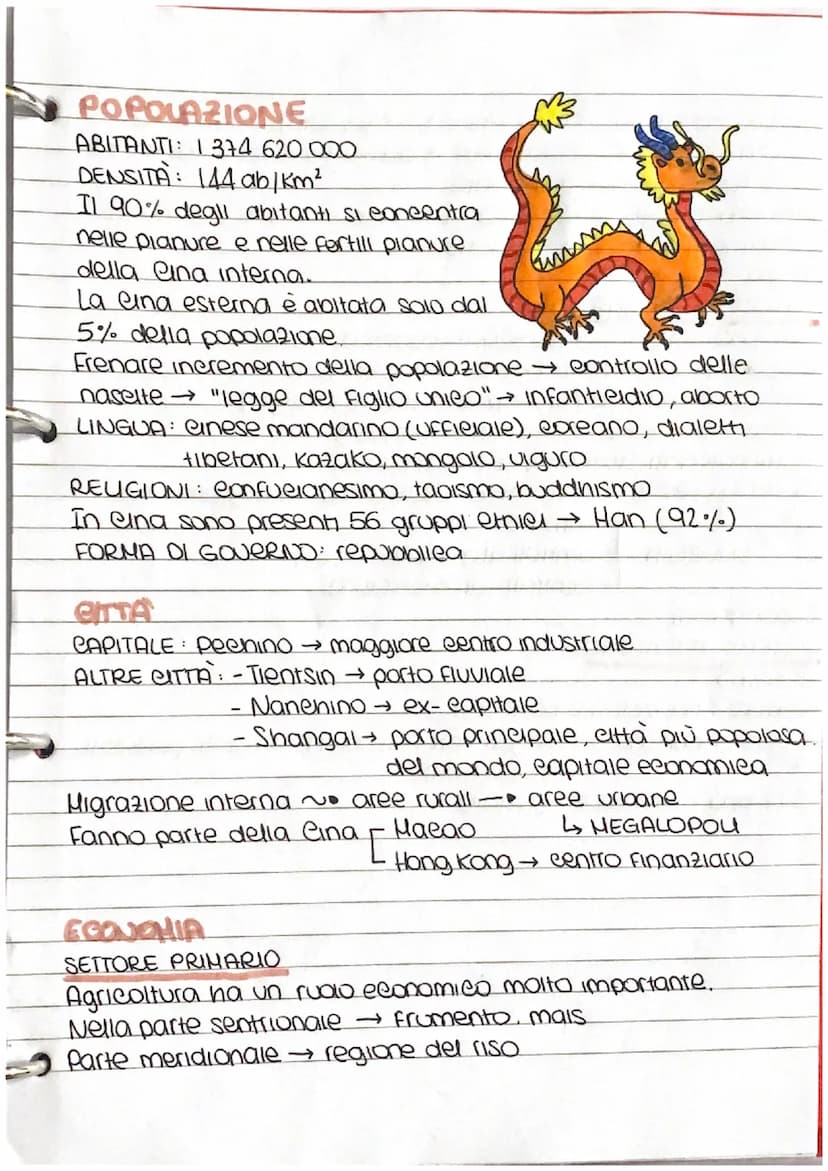 POPOLAZIONE
ABITANTI: 1 374 620 000
DENSITÀ: 144 ab/Km²
Il 90% degli abitanti si concentra
nelle pianure e nelle fertili pianure
della Cina interna.
La Cina esterna è abitata solo dal
5% della popolazione.
Frenare incremento della popolazione → controllo delle
nascite → "legge del figlio unico" → infanticidio, aborto
LINGUA: cinese mandarino (ufficiale), coreano, dialetti
tibetani, kazako, mongolo, uiguro
RELIGIONI: confucianesimo, taoismo, buddhismo
In Cina sono presenti 56 gruppi etnici → Han (92%)
FORMA DI GOVERNO: repubblica
CITTÀ
CAPITALE: Pechino → maggiore centro industriale
ALTRE CITTÀ: - Tientsin → porto fluviale
- Nanchino → ex-capitale
- Shangai → porto principale, città più popolosa
del mondo, capitale economica
Migrazione interna ~• aree rurali —• aree urbane
Fanno parte della Cina [ Macao ↳ MEGALOPOLI
Hong Kong → centro finanziario
ECONOMIA
SETTORE PRIMARIO
Agricoltura ha un ruolo economico molto importante.
Nella parte sentrionale → frumento, mais
Parte meridionale → regione del riso